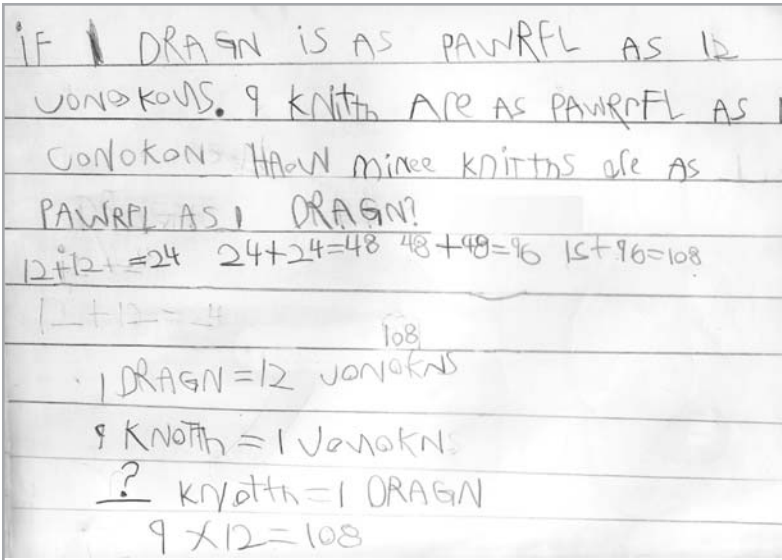 iF 1 DRAGN iS AS PAWRFL AS 12
UONOKOUS. 9 KNitth Are AS PAWRrFL AS 1
UONOKON HAOW minee knitths are AS
PAWRFL AS 1 DRAGN?
12+12=24 24+24=48 48+48=96 12+96=108
12+12=24
108
1 DRAGN=12 UONOKNS
9 KNOTth=1 UONOKN.
? KNOtth=1 DRAGN
9×12=108